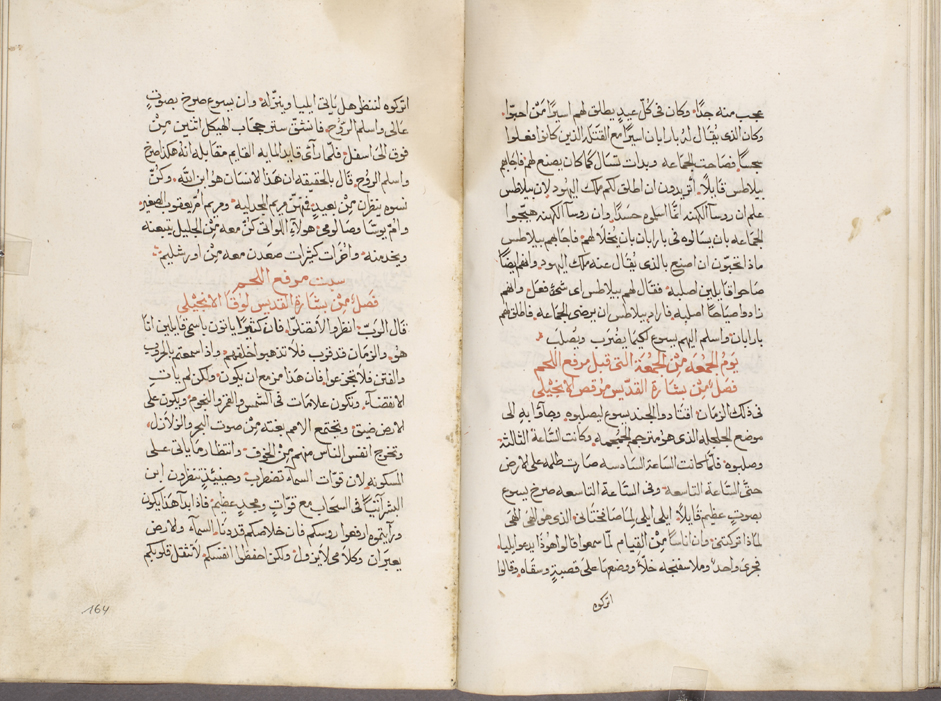 عجب منه جدًا. وكان في كل عيد يطلق لهم اسيرًا ممن احبوا.
وكان الذي يقال له باراباان اسيرًا مع القتله الذين كانوا فعلوا
بجسًا. فصاحت الجماعه وبدات تسال كما كان يصنع لهم فاجابهم
بيلاطس قايلًا. أتريدون ان اطلق لكم ملك اليهود لان بيلاطس
علم ان روسا الكهنه انما اسلموه حسدًا. وان روسا الكهنه هيجوا
الجماعه بان يسالوه في بارابان بان يخلا لهم. فاجابهم بيلاطس
ماذا تحبون ان اصنع بالذي يقال عنه ملك اليهود. وانهم ايضًا
صاحوا قايلين اصلبه. فقال لهم بيلاطس اي شي فعل. وانهم
زادوا صياحًا اصلبه. فاراد بيلاطس ان يرضى الجماعه. فاطلق لهم
بارابان واسلم اليهم يسوع لكيما يضرب. ويصلب.
يوم الجمعه من الجمعه التي قبل مرفع اللحم
فصل من بشارة القديس مرقص الانجيلي
في ذلك الزمان. اقتادوا الجند يسوع ليصلبوه. وجاوا به الى
موضع الجلجله الذي هو مترجم الجمجمه. وكانت الساعة الثالثة
وصلبوه. فلما كانت الساعة السادسه صارت ظلمه على الارض
حتى الساعة التاسعه. وفي الساعة التاسعه صرخ يسوع
بصوت عظيم قايلًا. ايلي ايلي لما صافختاني. الذي هو الهي الهي
لماذا تركتني. وان اناسًا من القيام لما سمعوا قالوا هوذا يدعو ايليا.
فجرى واحد وملا سفنجه خلًا. ووضعها على قصبة وسقاه. وقالوا
اتركوه
اتركوه لننظر هل ياتي ايليا وينزله. وان يسوع صرخ بصوت
عالي واسلم الروح. فانشق ستر حجاب الهيكل اثنين من
فوق الى اسفل. فلما رأى قايد المايه القايم مقابله انه هكذا صرخ
واسلم الروح. قال بالحقيقه ان هذا الانسان هو ابن الله. وكن
نسوه ينظرن من بعيد. فيهن مريم المجدليه. ومريم ام يعقوب الصغير.
وام يوسا. وصالومي. هولاي اللواتي كن معه من الجليل يتبعنه
ويخدمنه. واخرات كثيرات صعدن معه من اورشليم.
سبت مرفع اللحم
فصل من بشارة القديس لوقا الانجيلي
قال الرب. انظروا لا تضلوا. فان كثيرًا ياتون باسمي قايلين انا
هو. والزمان قد قرب فلا تذهبوا خلفهم. واذا سمعتم بالحروب
والفتن فلا تجزعوا. فان هذا مزمع ان يكون. ولكن لم يات
الانقضآ. وتكون علامات في الشمس والقمر والنجوم. ويكون على
الارض ضيق. وتجتمع الامم بغته من صوت البحر والزلازل.
وتخرج انفس الناس منهم من الخوف. وانتظار ما ياتي على
المسكونه. لان قوات السمآ تضطرب. وحينيذٍ تنظرون ابن
البشر آتيًا في السحاب مع قوات. ومجد عظيم. فاذا ابدا هذا يكون
ورآيتموه ارفعوا روسكم فان خلاصكم قد دنا. السمآ. والارض
يعبران. وكلامي لا يزول. ولكن احفظوا انفسكم. لا تثقل قلوبكم
164